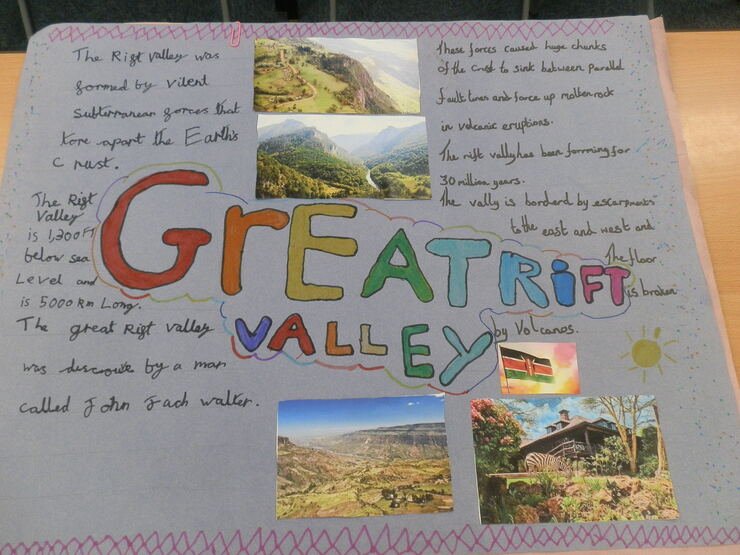 The Rift valley was
formed by vilent
subterranean forces that
tore apart the Earth's
Crust.
The Rift
Valley
is 1,300 Ft
below sea
Level and
is 5000 Km Long.
The great Rift valley
was by a man
called John Jach walter.
GrEAT RiFT
VALLEY
These forces caused huge chunks
of the Crust to sink between parallel
fault lines and force up molten rock
in volcanic eruptions.
The rift vally has been forrming for
30 million years.
The vally is borderd by escarpments
to the east and west and
the floor
is broken
by Volcanos.